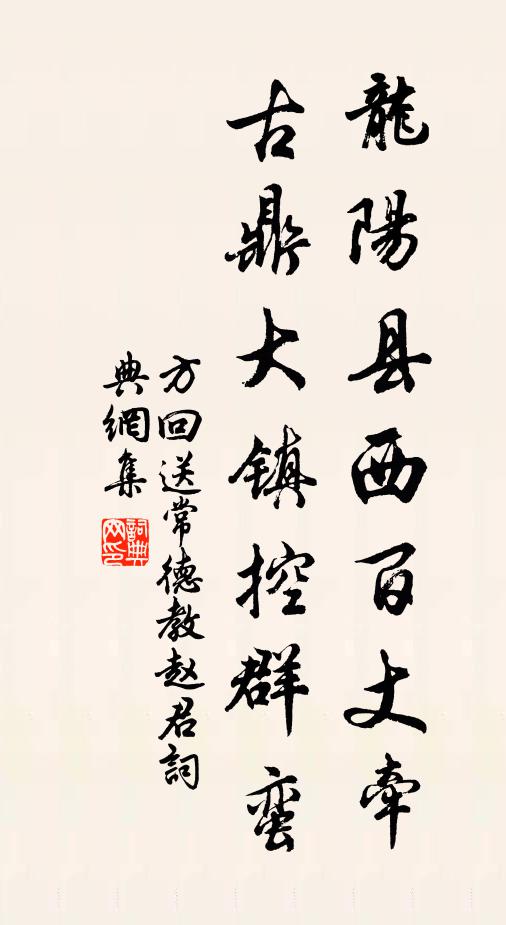 龍陽县西百丈牽
古鼎大镇控群蛮
方回送常德教赵君詞
典網集
詞典
网印